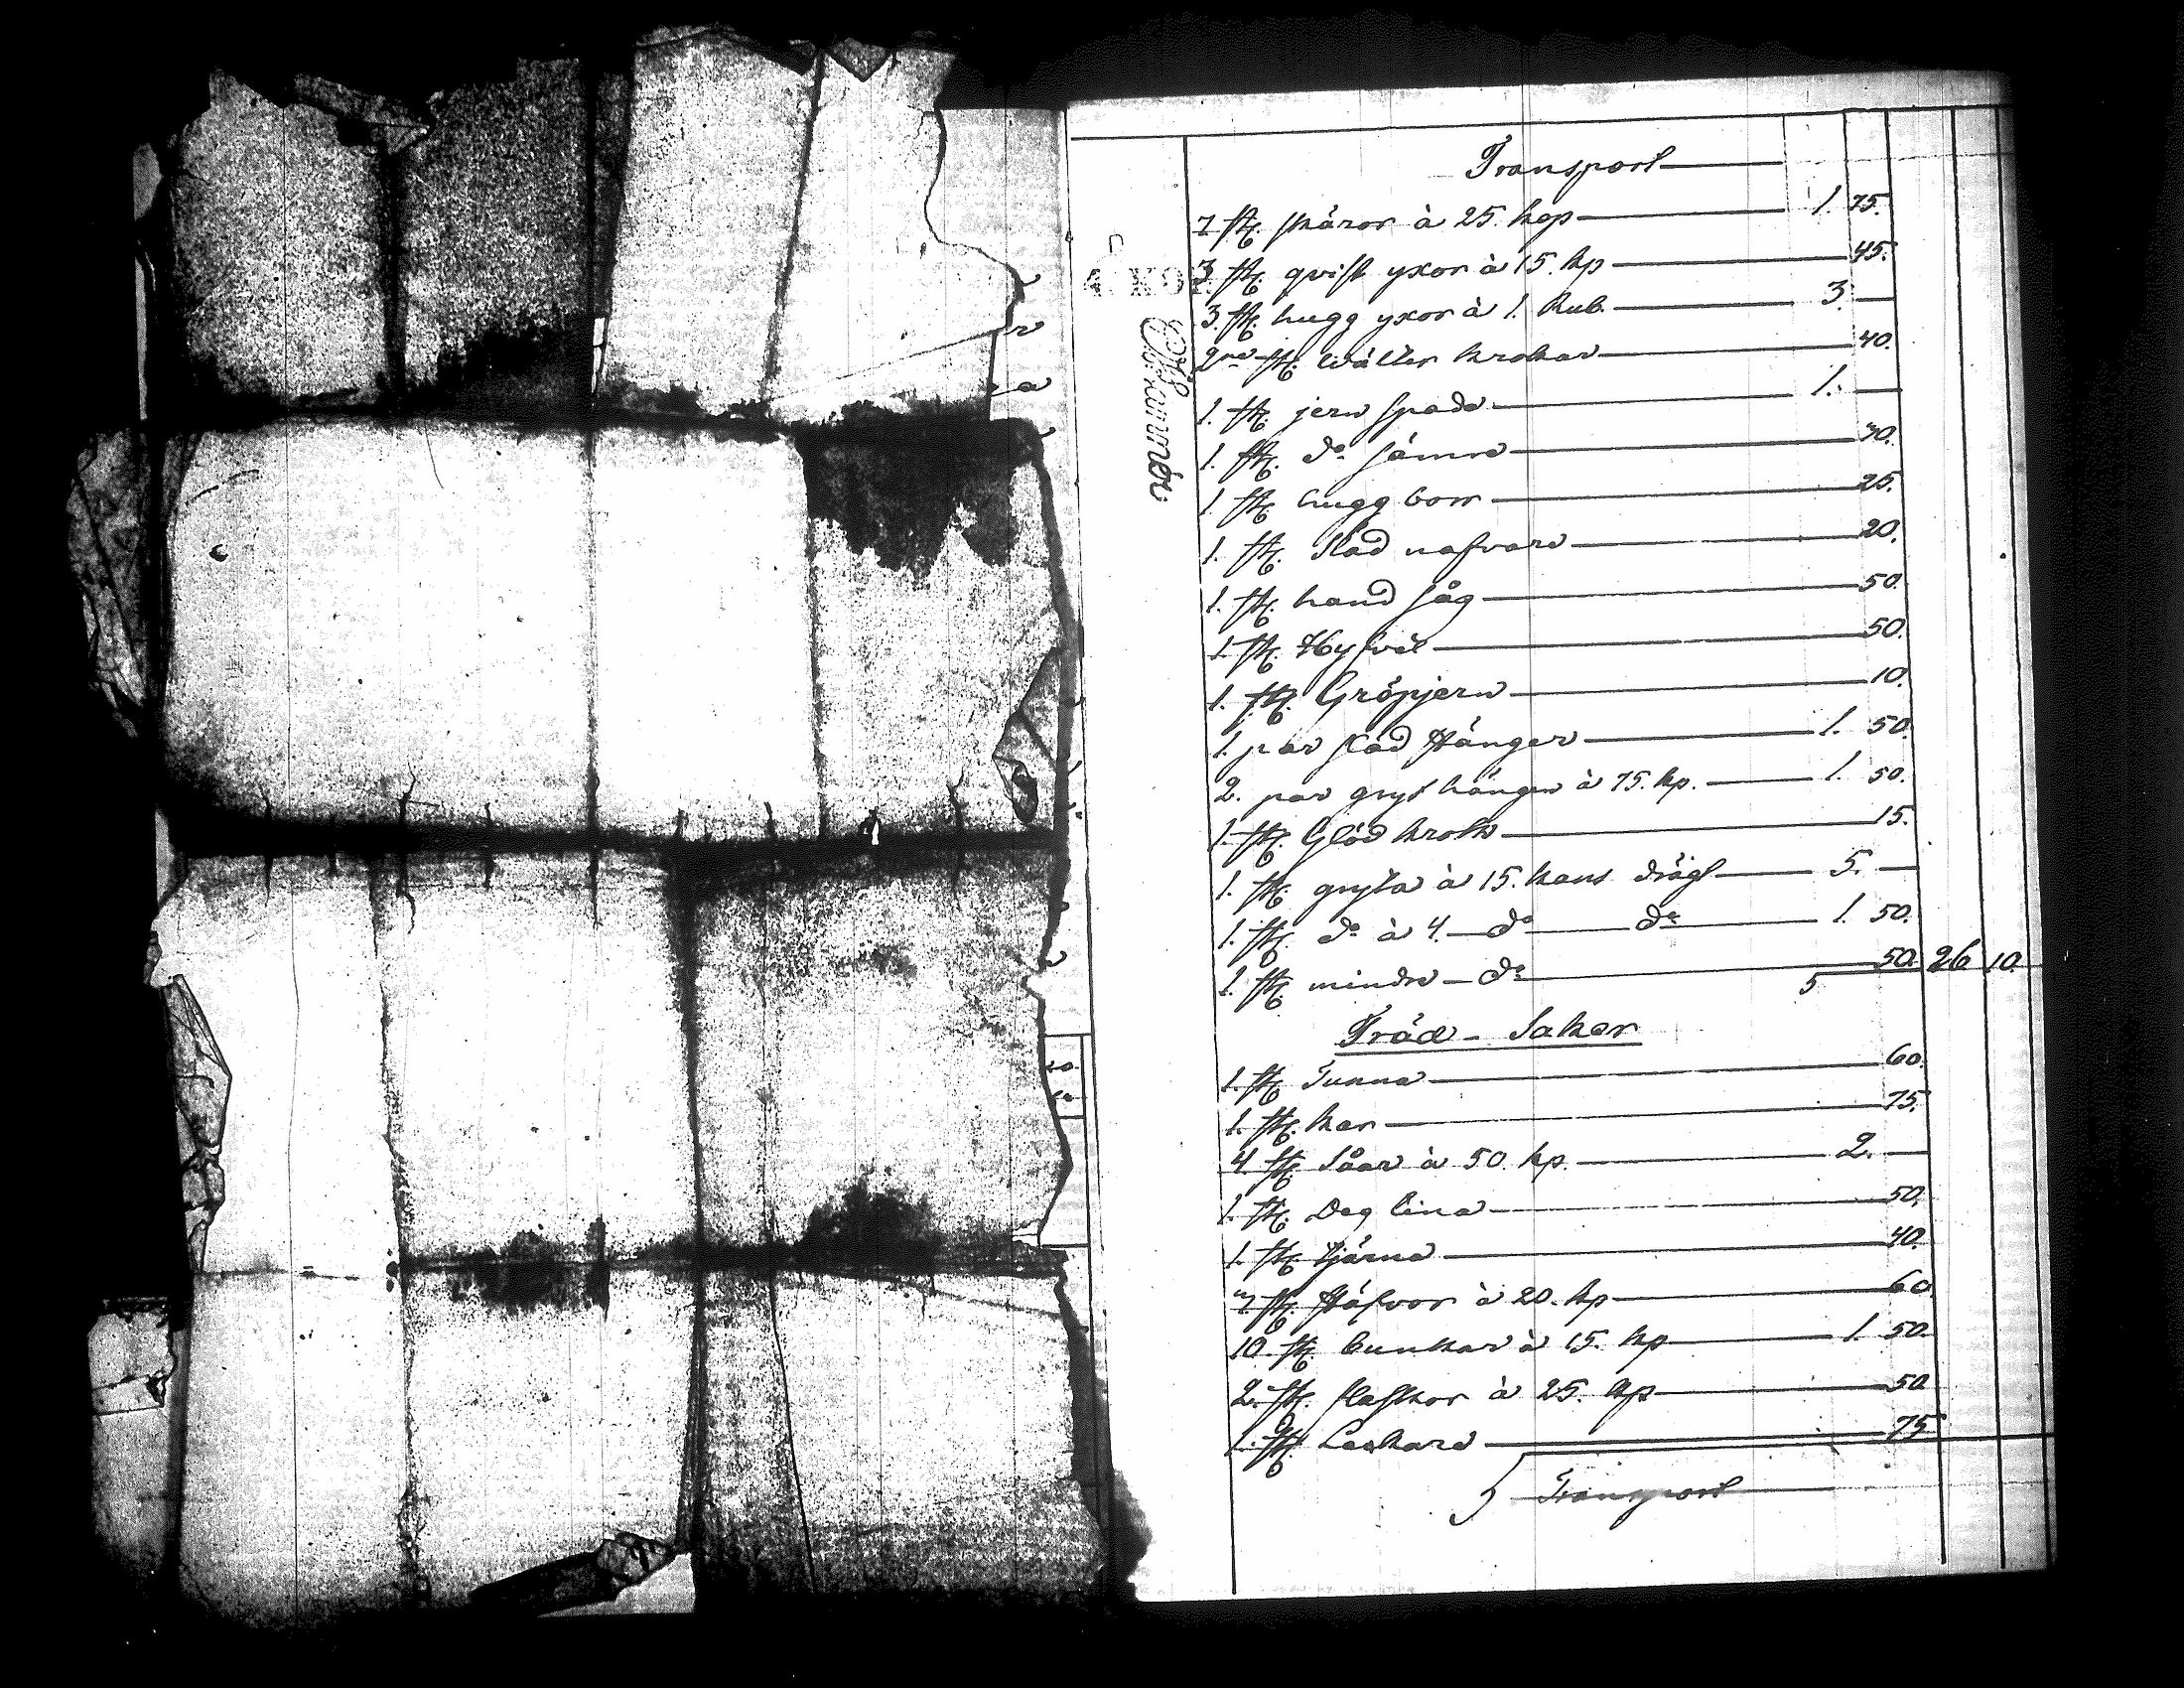 Transport
7 st. skäror à 25. kop 1. 75.
3 st. qvist yxor à 15. kp 45.
3. st. hugg yxor à 1. Rub. 3. —
2ne st. wälter krokar 40.
1. st. jern spade 1. —
1. st. do 30.
1 st. hugg borr 25.
1. st. nafvare 20.
1. st. hand såg 50.
1. st. Hyfvel 50.
1. st. Gröpjern 10.
1. par Hänger 1. 50.
2. par gryt hängen à 75. kp. 1. 50.
1. st. Glöd krok 15.
1. st. gryta à 15. kans drägt 5. —
1. st. do à 4. do do 1. 50.
1. st. mindre do 50. 26 10.
Träd - Saker
1. st. Tunna 60.
1. st. kar 75.
4. st. Såar à 50. kp. 2. —
1. st. Deg lina 50.
1. st. tjärna 40.
st. Stäfvor à 20. kp 60
10. st. bunkar à 15. kp 1. 50.
2. st. flaskor à 25. kp 50
1. st. 75
Transport